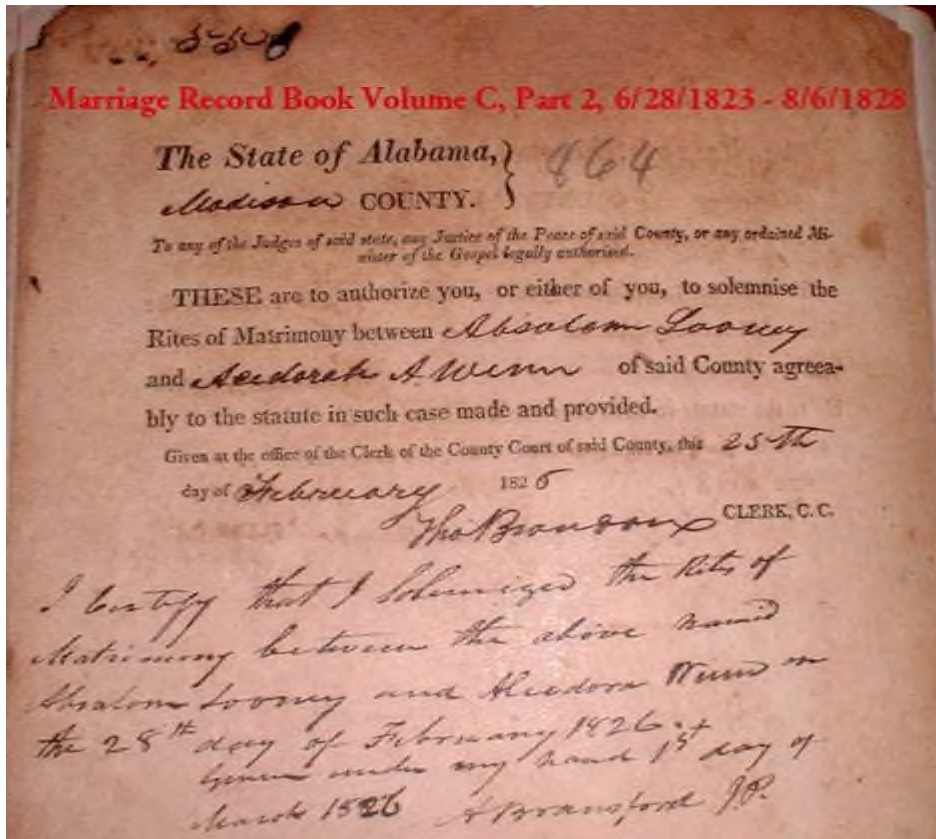 Marriage Record Book Volume C, Part 2, 6/28/1823 - 8/6/1828
The State of Alabama,
864
Madison COUNTY.
To any of the Judges of said state, any Justice of the Peace of said County, or any ordained Mi-
nister of the Gospel legally authorised.
THESE are to authorize you, or either of you, to solemnise the
Rites of Matrimony between Absalom Looney
and A Winn of said County agreea-
bly to the statute in such case made and provided.
Given at the office of the Clerk of the County Court of said County, this 25th
day of February 1826
Tho Brandon CLERK, C. C.
I Certify that I Solemnized the Rits of
Matrimony between the above named
Absalom Looney and Winn on
the 28th day of February 1826.
Given under my hand 1st day of
March 1826 A Bransford J.P.